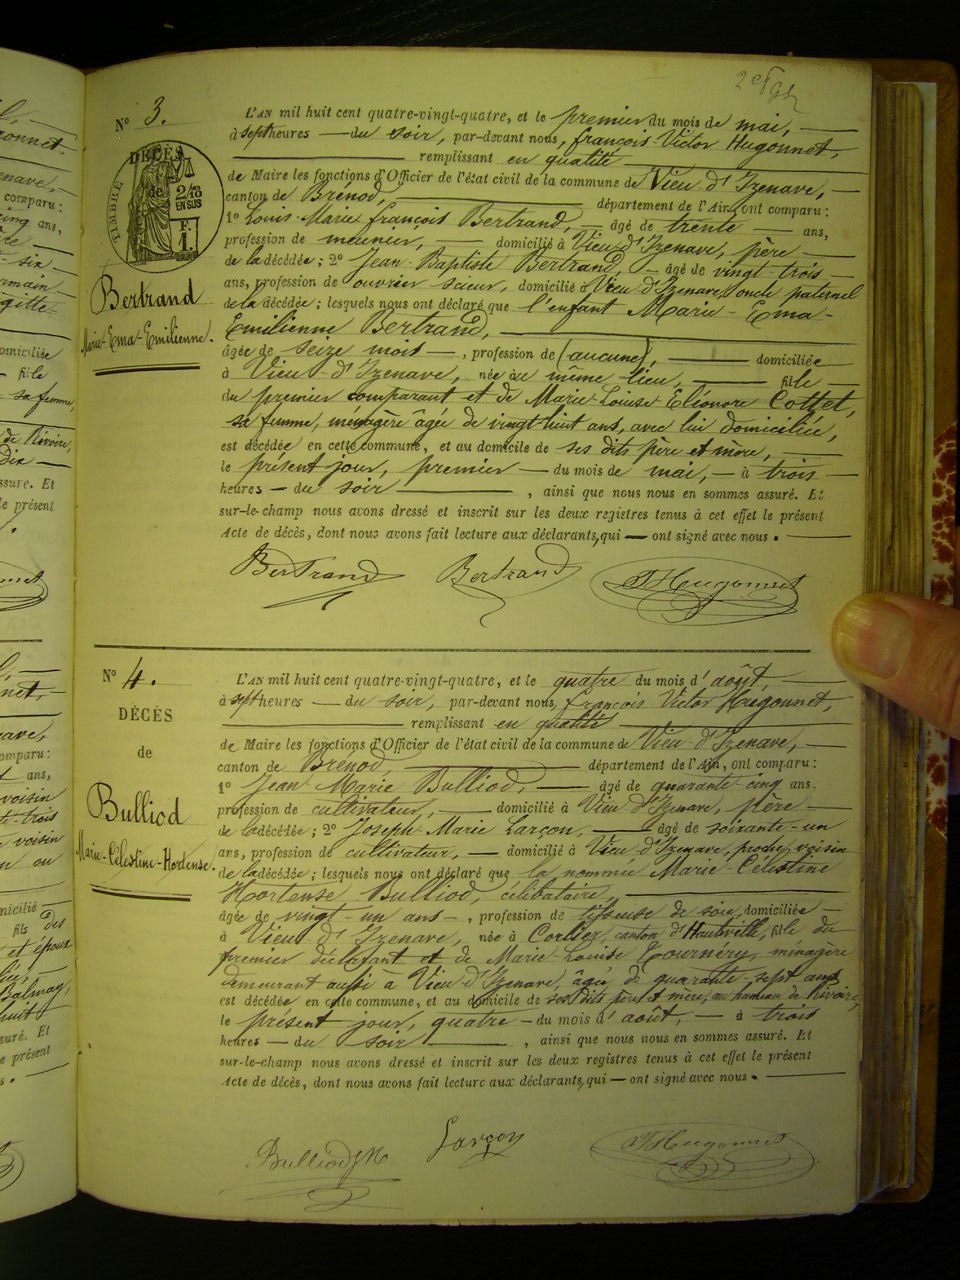 Nº 3.
DÉCÈS
de
TIMBRE
2/10
EN SUS
F.
1.
Bertrand
Marie-Ema-Emilienne.
L'AN mil huit cent quatre-vingt-quatre, et le premier du mois de mai,
à sept heures — du soir, par-devant nous, françois Victor Hugonnet,
remplissant en qualité
de Maire les fonctions d'Officier de l'état civil de la commune de Vieu d'Izenave,
canton de Brénod, département de l'Ain, ont comparu :
1º Louis-Marie françois Bertrand, — âgé de trente — ans,
profession de meunier, — domicilié à Vieu d'Izenave, père —
de la décédée ; 2º Jean-Baptiste Bertrand, — âgé de vingt trois —
ans, profession de ouvrier scieur, domicilié à Vieu d'Izenave, oncle paternel
de la décédée ; lesquels nous ont déclaré que l'enfant Marie-Ema-
Emilienne Bertrand,
âgée de seize mois —, profession de (aucune), — domiciliée
à Vieu-d'Izenave, née au même lieu, — fille —
du premier comparant et de Marie-Louise Eléonore Cottet,
sa femme, ménagère âgée de vingt huit ans, avec lui domiciliée,
est décédée en cette commune, et au domicile de ses dits père et mère,
le présent jour, premier — du mois de mai, — à trois
heures — du soir —, ainsi que nous nous en sommes assuré. Et
sur-le-champ nous avons dressé et inscrit sur les deux registres tenus à cet effet le présent
Acte de décès, dont nous avons fait lecture aux déclarants, qui — ont signé avec nous.
Bertrand Bertrand Hugonnet
Nº 4.
DÉCÈS
de
Bulliod
Marie-Célestine-Hortense.
L'AN mil huit cent quatre-vingt-quatre, et le quatre du mois d'août,
à sept heures — du soir, par-devant nous, françois Victor Hugonnet,
remplissant en qualité
de Maire les fonctions d'Officier de l'état civil de la commune de Vieu-d'Izenave,
canton de Brénod département de l'Ain, ont comparu :
1º Jean Marie Bulliod, — âgé de quarante-cinq ans.
profession de cultivateur, — domicilié à Vieu d'Izenave, père —
de la décédée ; 2º Joseph-Marie Larçon, — âgé de soixante-un
ans, profession de cultivateur, — domicilié à Vieu-d'Izenave, proche voisin
de la décédée ; lesquels nous ont déclaré que la nommée Marie-Célestine
Hortense Bulliod, célibataire,
âgée de vingt-un ans —, profession de tisseuse de soie, domiciliée —
à Vieu d'Izenave, née à Corlier, canton d'Hauteville, fille du
premier déclarant et de Marie-Louise Tournéry, ménagère
demeurant aussi à Vieu-d'Izenave, âgée de quarante-sept ans,
est décédée en cette commune, et au domicile de ses dits père et mère, au hameau de Rivoire,
le présent jour, quatre — du mois d'août, — à trois
heures — du soir —, ainsi que nous nous en sommes assuré. Et
sur-le-champ nous avons dressé et inscrit sur les deux registres tenus à cet effet le présent
Acte de décès, dont nous avons fait lecture aux déclarants, qui — ont signé avec nous.
Bulliod JM Larçon Hugonnet